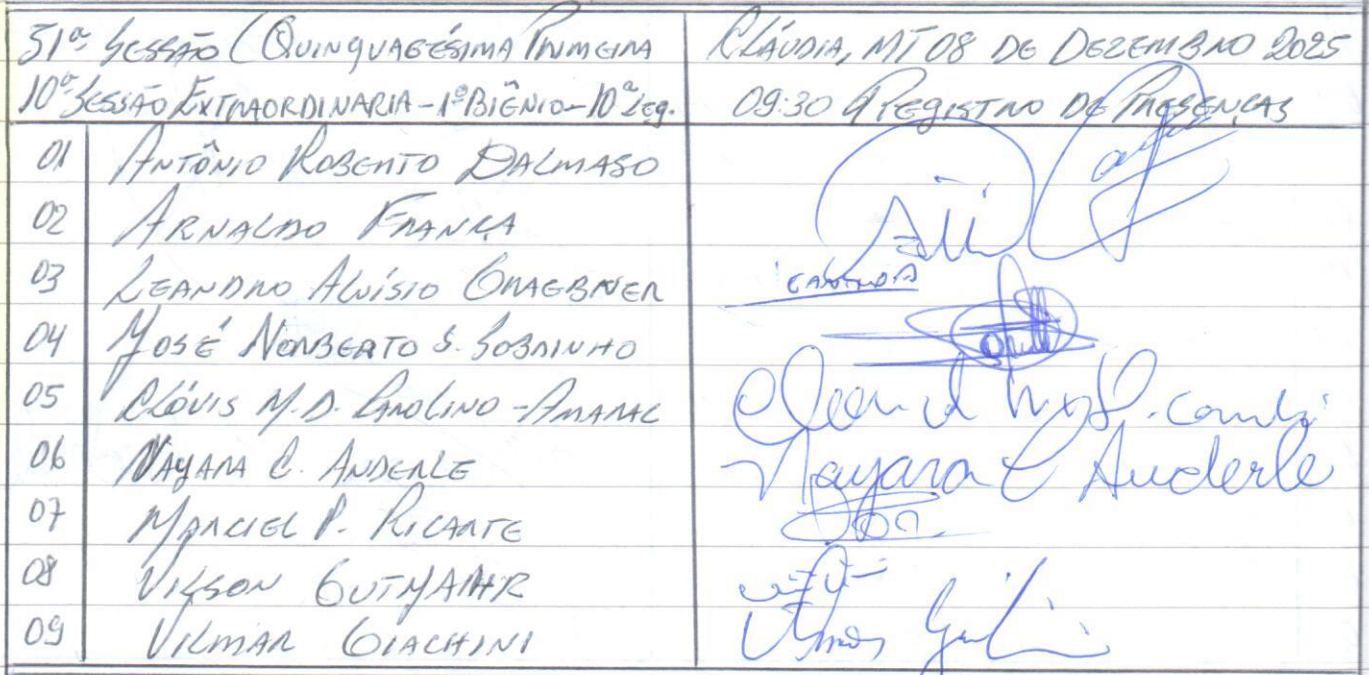 51ª Sessão (Quinquagésima Primeira
10ª Sessão Extraordinaria - 1º Biênio - 10ª Leg.
Cláudia, MT 08 de Dezembro 2025
09:30 Registro de Presenças
01 Antônio Roberto Dalmaso
02 Arnaldo França
03 Leandro Aluísio Graebner
04 José Norberto S. Sobrinho
05 Clóvis M.D. Carolino - Amaral
06 Nayara C. Anderle
Nayara C Anderle
07 Marciel P. Ricarte
08 Vilson Gutjahr
09 Vilmar Giachini